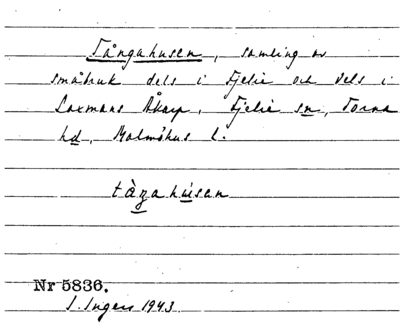 Tångahusen, samling av
småbruk dels i Fjelie och dels i
Laxmans Åkarp, Fjelie sn, Torna
hd, Malmöhus l.
tàŋahúsan
Nr 5836.
I. Ingers 1943.